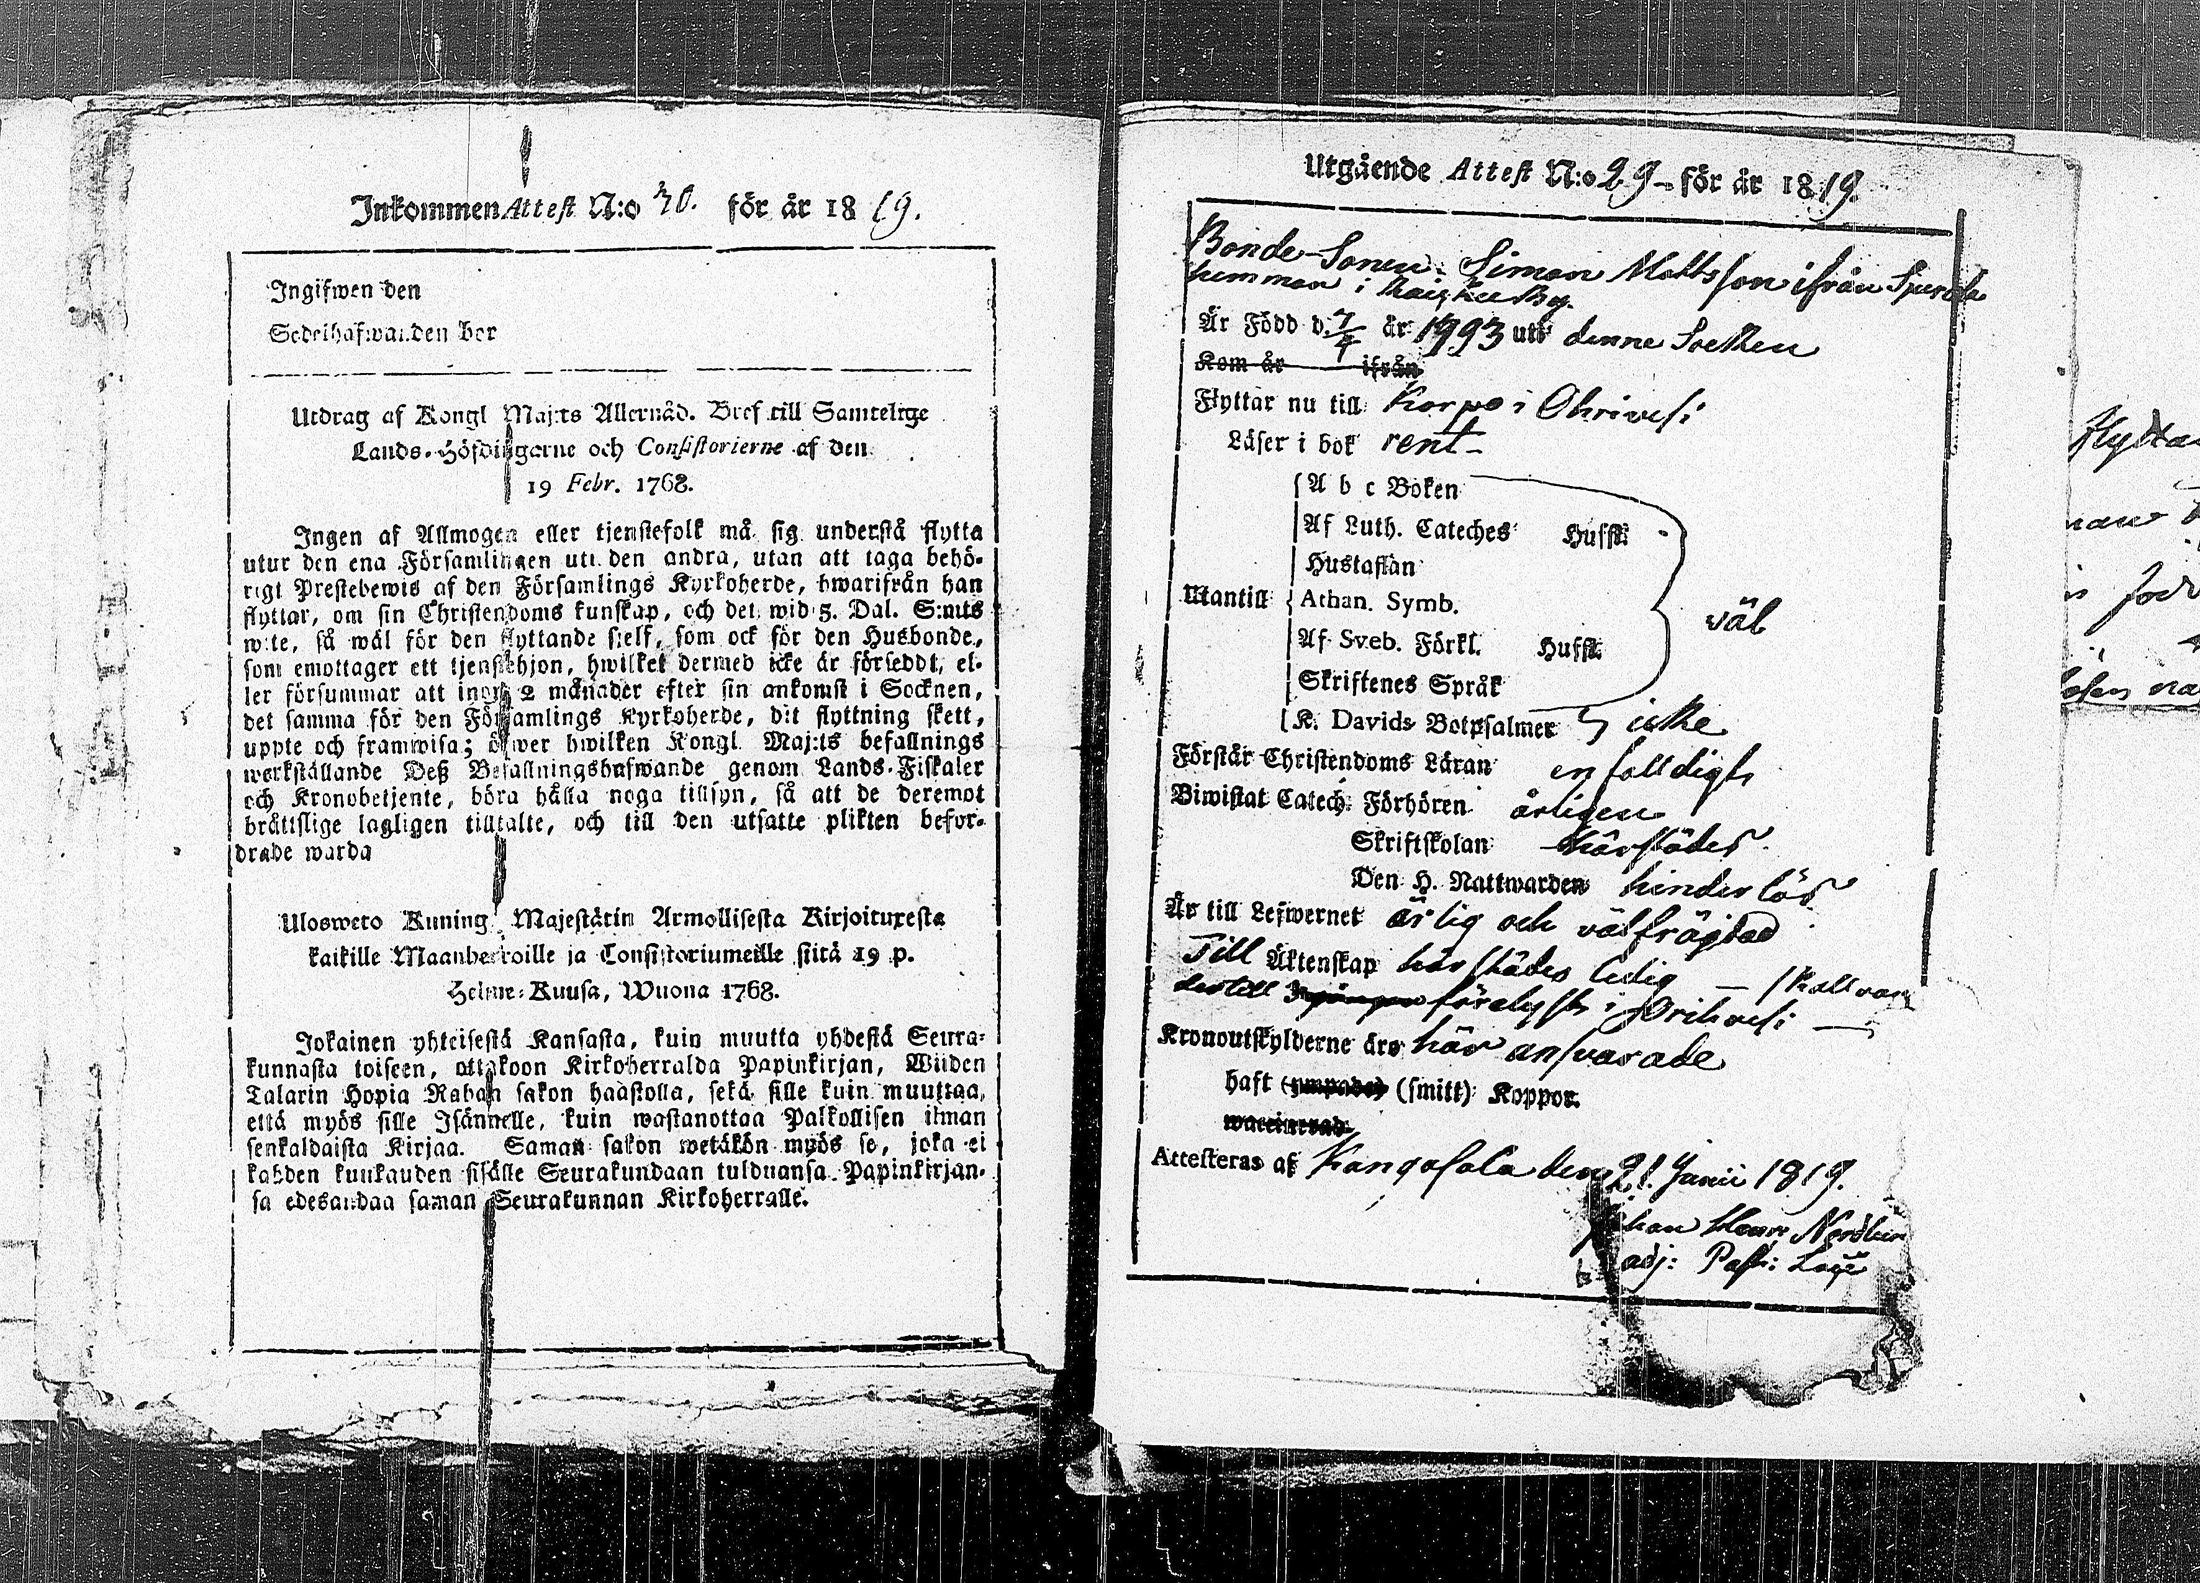 Inkommen Attest N:o 40. för år 1819.
Ingifwen den
Sedelhafwanden bor
Utdrag af Kongl Maj:ts Allernåd. Bref till Samtelige
Lands-Höfdingarne och Consistorierne af den
19 Febr. 1768.
Ingen af Allmogen eller tjenstefolk må sig understå flytta
utur den ena Församlingen uti den andra, utan att taga behö-
rigt Prestebewis af den Församlings Kyrkoherde, hwarifrån han
flyttar, om sin Christendoms kunskap, och det wid 5. Dal. S:mts
wite, så wäl för den flyttande sjelf, som ock för den Husbonde,
som emottager ett tjenstehjon, hwilket dermed icke är försedt, el-
ler försummar att inom 2 månader efter sin ankomst i Socknen,
det samma för den Församlings Kyrkoherde, dit flyttning skett,
uppte och framwisa; öfwer hwilken Kongl Maj:ts befallnings
werkställande Deß Befallningshafwande genom Lands-Fiskaler
och Kronobetjente, böra hålla noga tillsyn, så att de deremot
bråttslige lagligen tilltalte, och till den utsatte plikten befor-
drade warda
Ulosweto Kuning. Majestätin Armollisesta Kirjoituxesta
kaikille Maanherroille ja Consistoriumeille siitä 19 p.
Helme-Kuusa, Wuona 1768.
Jokainen yhteisestä Kansasta, kuin muutta yhdestä Seura-
kunnasta toiseen, ottakoon Kirkoherralda Papinkirjan, Wiiden
Talarin Hopia Rahan sakon haastolla, sekä sille kuin muuttaa,
että myös sille Isännelle, kuin wastanottaa Palkollisen ilman
senkaldaista Kirjaa. Saman sakon wetäkön myös se, joka ei
kahden kuukauden sisälle Seurakundaan tulduansa Papinkirjan-
sa edesandaa saman Seurakunnan Kirkoherralle.
Utgående Attest N:o 29 för år 1819.
Bonde-Sonen Simon Mattsson ifrån
hemman i By.
Är Född d. 7/4 år 1793 uti denne Socken
Kom år ifrån
Flyttar nu till Korpo i Orivesi
Läser i bok rent
A b c Boken
Af Luth. Cateches Husfl.
Hustaflan
Utantill Athan. Symb. väl
Af Sveb. Förkl. Husfl.
Skriftenes Språk
K. Davids Botpsalmer icke
Förstår Christendoms Läran enfalldigt
Biwistat Catech. Förhören årligen
Skriftskolan härstädes
Den H. Nattwarden hinderlös
Är till Lefwernet ärlig och välfrägdad
Till Äktenskap härstädes ledig — skall vara
dertill förelyst i Orivesi —
Kronoutskylderne äro här ansvarade
haft (ympade) (smitt) Koppor.
waccinerad
Attesteras af Kangasala den 21 Junii 1819.
Johan Henr Nordlun
adj: Past: Loci
flytta